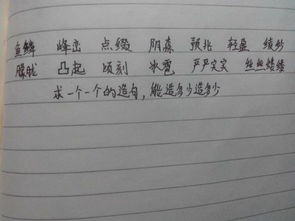 鱼鳞 峰峦 点缀 阴森 预兆 轻盈 绫纱
朦胧 凸起 顷刻 冰雹 严严实实 丝丝缕缕
求一个一个的造句，能造多少造多少